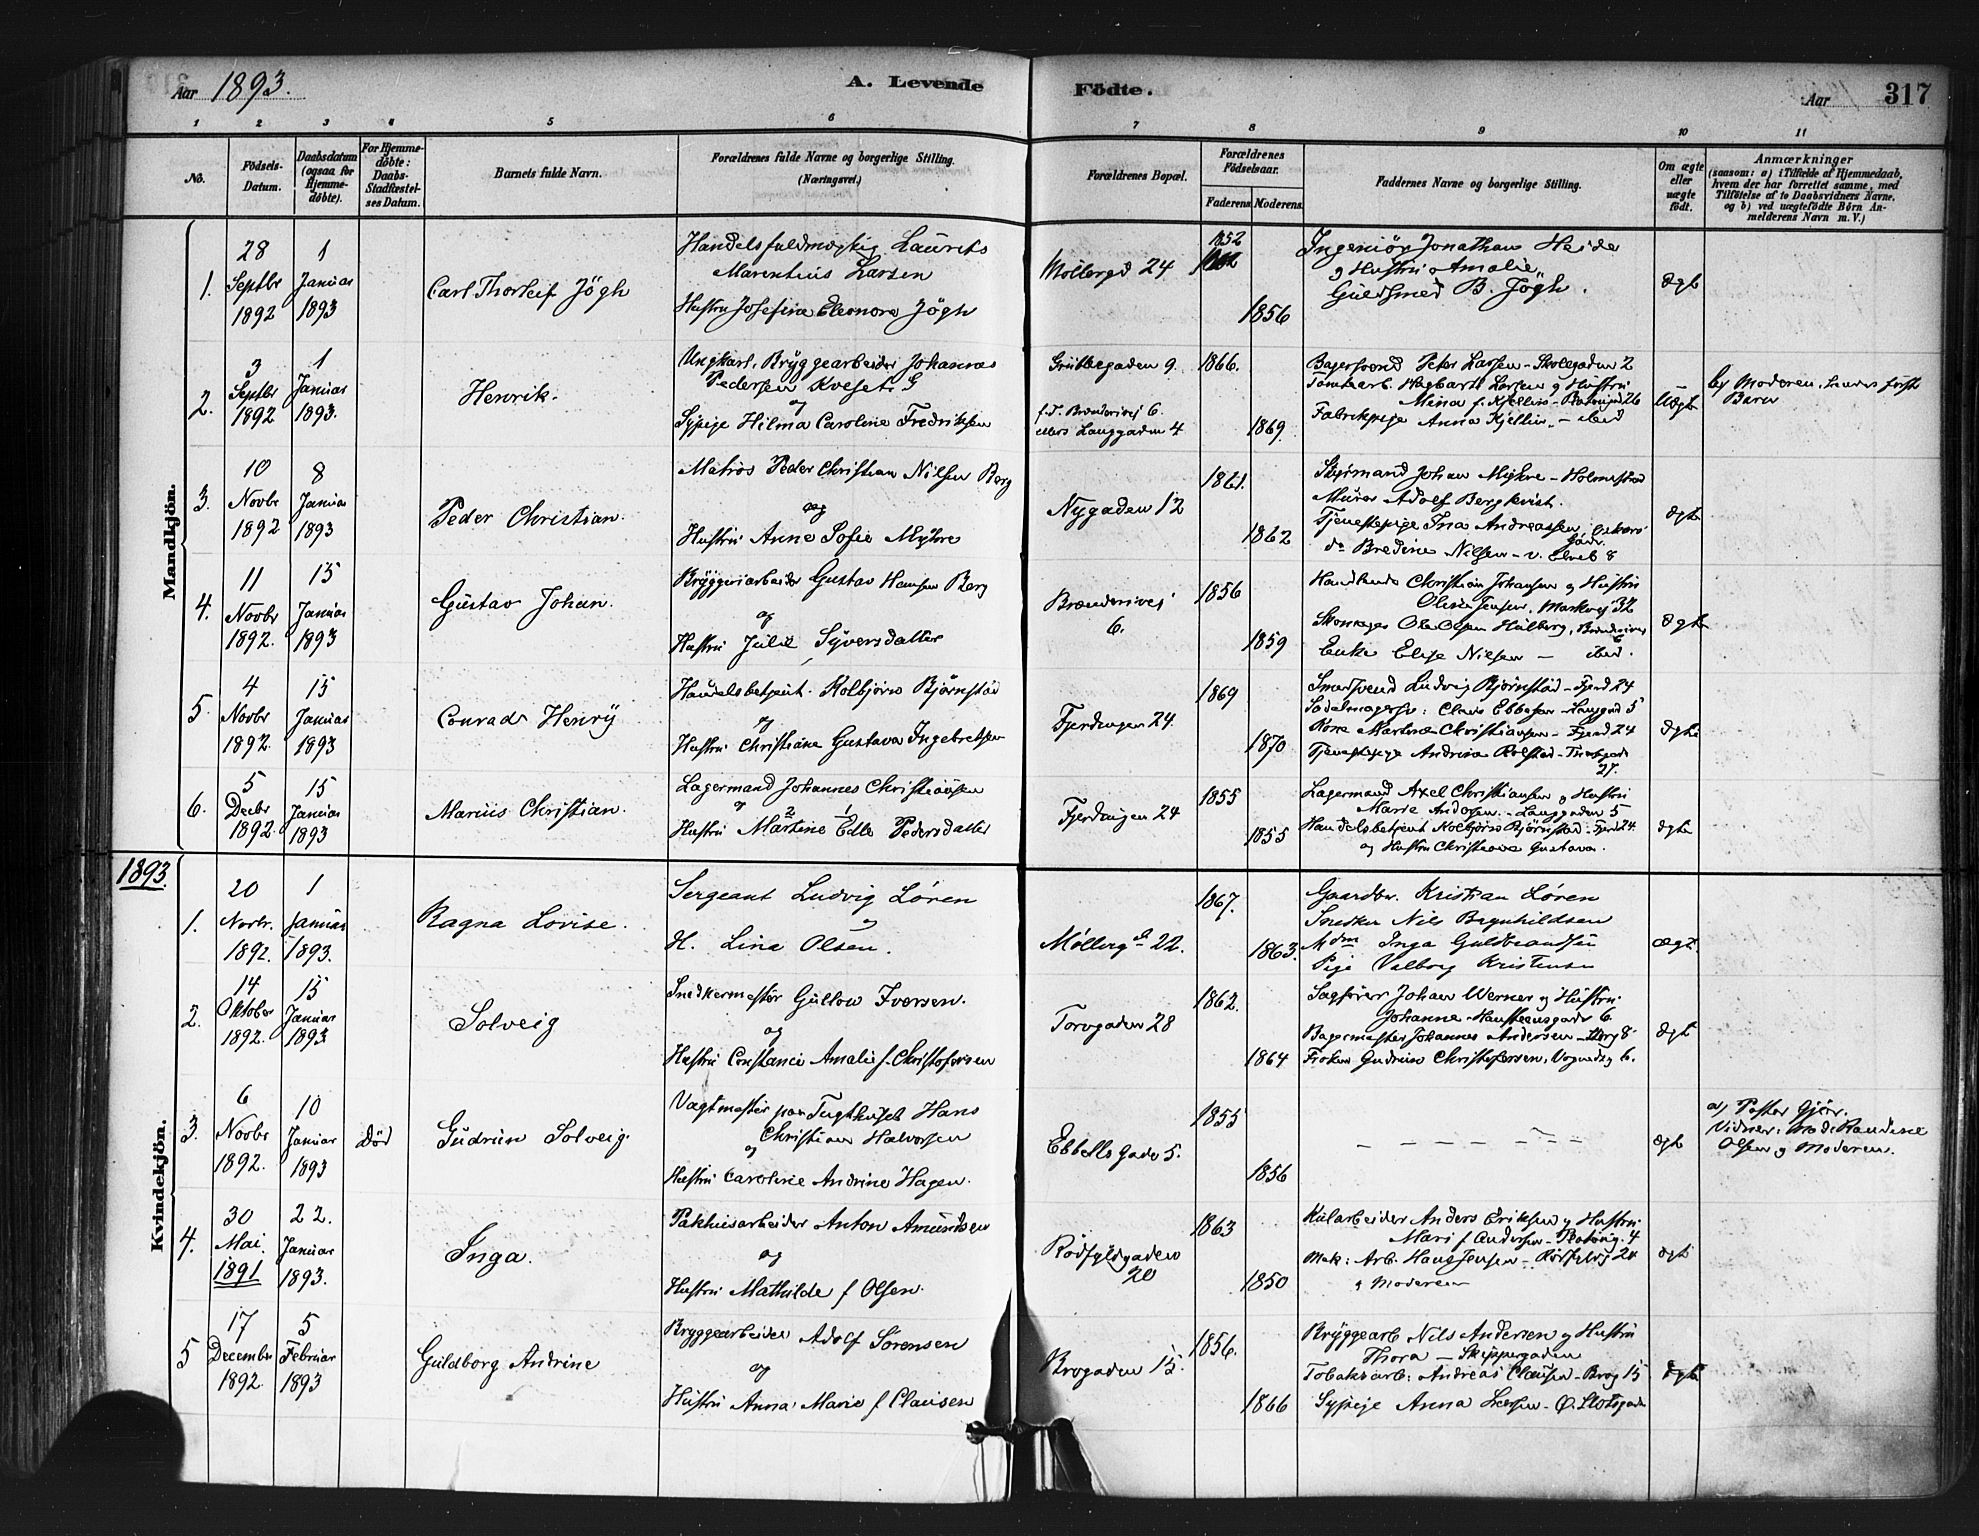 Aar 1893.
A. Levende Födte.
Aar 317
1 2 3 4 5 6 7 8 9 10 11
No.
Födsels-
Datum.
Daabsdatum
(ogsaa for
Hjemme-
döbte).
For Hjemme-
döbte:
Daabs-
Stadfæstel-
ses Datum.
Barnets fulde Navn.
Forældrenes fulde Navne og borgerlige Stilling.
(Næringsvei.)
Forældrenes Bopæl.
Forældrenes
Födselsaar.
Faderens. Moderens.
Faddernes Navne og borgerlige Stilling.
Om ægte
eller
uægte
födt.
Anmærkninger
(saasom: a) i Tilfælde af Hjemmedaab,
hvem der har forrettet samme, med
Tilföielse af to Daabsvidners Navne,
og b) ved uægtefödte Börn An-
melderens Navn m. V.)
Mandkjön.
1.
28
Septbr
1892
1
Januar
1893
Carl Thorleif Jögh
Handelsfuldmægtig Laurits
Marentius Larsen
Hustru Josefine Eleonora Jögh
Møllergd 24
1852
1856
Ingeniör Jonathan Heide
og Hustru Amalie
Guldsmed B. Jögh.
Ægte
2.
3
Septbr
1892
1
Januar
1893.
Henrik.
Ungkarl, Bryggearbeider Johannes
Pedersen
og
Sypige Hilma Caroline Fredriksen
Grubbegaden 9.
Brænderivej 6.
ellers Langgaden 4
1866.
1869.
Bagersvend Peter Larsen - Skolegaden 2
Tomtearb. Hagbarth Larsen og Hustru
Mina f. Kjellin - 26
Fabrikpige Anna Kjellin - ibid
Uægte
b) Moderen, hendes første
Barn
3.
10
Novbr
1892
8
Januar
1893
Peder Christian.
Matros Peder Christian Nilsen Berg
og
Hustru Anne Sofie Myhre
Nygaden 12
1861.
1862
Styrmand Johan Myhre - Holmestrand
Murer Adolf Bergkvist.
Tjenestepige Ina Andreassen
do Bredine Nilsen - v. Elveb 8
ægte
4.
11
Novbr
1892.
15
Januar
1893
Gustav Johan.
Bryggeriarbeider Gustav Hansen Berg
og
Hustru Julie Syversdatter
Brænderivej
6.
1856
1859
Handlende Christian Johansen og Hustru
Olivia Jensen, Markvej 32
Skomager Ole Olsen Hålberg, Brænderivej
6
Enke Elise Nilsen - ibid.
Ægte
5.
4
Novbr
1892.
15
Januar
1893
Conrad Henry
Handelsbetjent Kolbjørn Bjørnstad
og
Hustru Christiane Gustava Ingebretsen
Fjerdingen 24.
1869
1870
Smedsvend Ludvig Bjørnstad - Fjerd 24
Sadelmagersv: Claus Ebbesen - Langgad 5
Kone Martine Christiansen - Fjerd 24
Tjenestepige Andrine Rolstad -
27.
Ægte
6.
5
Decbr
1892.
15
Januar
1893
Marius Christian.
Lagermand Johannes Christiansen
og 2 1
Hustru Martine Edle Pedersdatter
Fjerdingen 24
1855
1855
Lagermand Axel Christiansen og Hustru
Marie Andersen - Langgaden 5
Handelsbetjent Kolbjørn Bjørnstad - Fjerd 24
og Hustru Christiane Gustava.
Ægte
1893.
Kvindekjön.
1.
20
Novbr.
1892.
1
Januar
1893.
Ragna Lovise.
Sergeant Ludvig Lören
og
H. Lina Olsen.
Møllergd 22.
1867.
1863.
Gaardbr. Kristian Lören
Snedker Nils Brynhildsen
Mdm Inga Guldbrandsen
Pige Valborg Kristensen
ægte.
2.
14
Oktober
1892.
15
Januar
1893
Solveig
Snedkermester Gullow Iversen.
og
Hustru Constance Amalie f. Christofersen
Torvgaden 28
1862.
1864
Sagförer Johan Werner og Hustru
Johanne - Hansteensgade 6.
Bagermester Johannes Andersen - 8
Frøken Gudrun Christofersen, Vogndg 6.
Ægte
3.
6
Novbr
1892.
10
Januar
1893
død
Gudrun Solveig.
Vagtmester paa Tugthuset Hans
Christian Halvorsen
og
Hustru Caroline Andrine Hagen.
Ebbells gade 5.
1855
1856
Ægte
a) Pastor Gjör.
Vidner: Mad. Randine
Olsen og Moderen.
4.
30
Mai
1891
22.
Januar
1893.
Inga.
Pakhusarbeider Anton Amundsen
og
Hustru Mathilde f Olsen.
Rødfyldgaden
20
1863
1850
Kularbeider Anders Eriksen og Hustru
Mari f Andersen - 4
Mek: Arb. Hans Jensen - Rødfyldg 20
og Moderen
Ægte
5
17
December
1892.
5
Februar
1893
Guldborg Andrine
Bryggearbeider Adolf Sørensen
og
Hustru Anna Marie f Clausen
Brogaden 15.
1856.
1866
Bryggearb Nils Andersen og Hustru
Thora - Skippergaden
Tobaksarb: Andreas Clausen - Brog 15
Sypige Anna Larsen - Ø. Slotsgade
Ægte